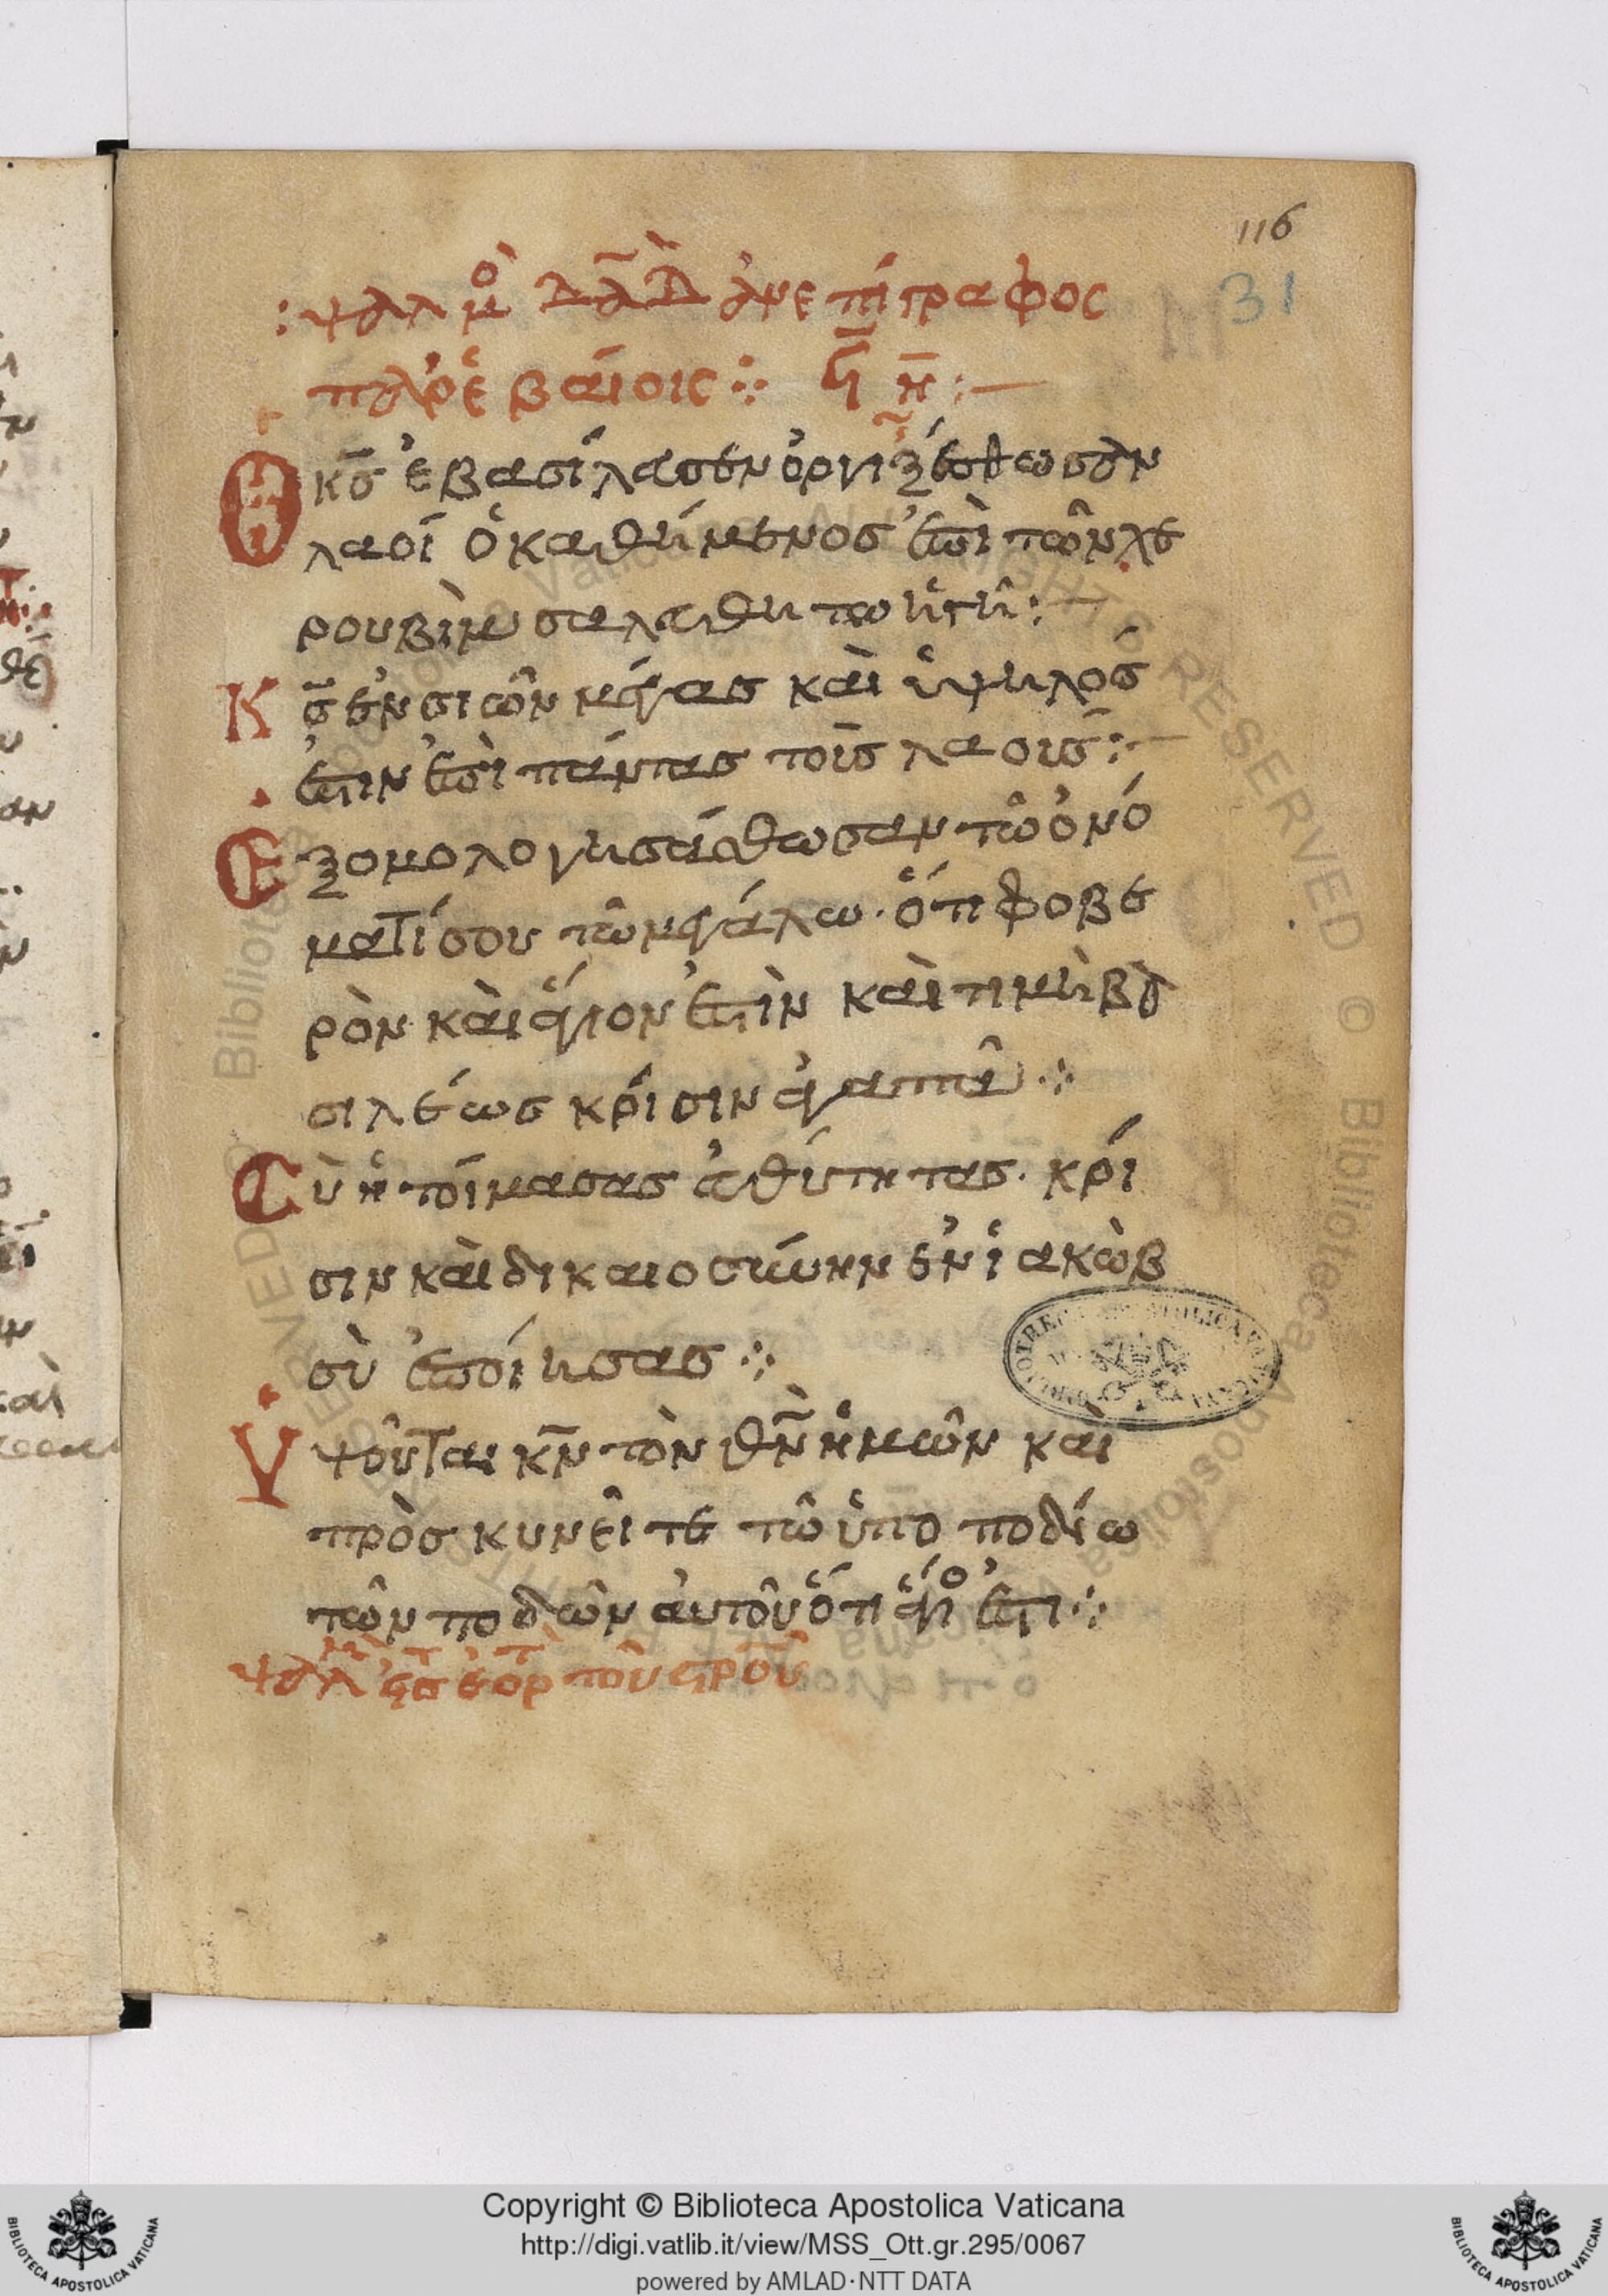 116
31
: ψαλμὸ δᾱδ ἀνεπήγραφος
παρ' ἑβαίοις ⁘ ϟ η :—
Ὁ κ̄ς ἐβασίλαυσεν ὀργιζέσθωσαν
λαοί ὁ καθήμενος ἐπὶ τῶν χε
ρουβὶμ σαλευθητω ἡ γῆ :—
Κ̄ς ἐν σιῶν μέγας καὶ ὑψηλός
ἐστιν ἐπὶ πάντας τοὺς λαους :—
Ἐξομολογησάσθωσαν τῶ ὀνό
ματί σου τῶ μεγάλω· ὅτι φοβε
ρὸν καὶ ἅγιον ἐστὶν καὶ τιμὴ βα
σιλέως κρίσιν ἀγαπᾶ ⁘
Σὺ ἡτοίμασας εὐθύτητας· κρί
σιν καὶ δικαιοσύνην ἐν ἱακὼβ
σὺ ἐποίησας ⁘
Ὑψοῦται κ̄ν τὸν θ̄ν ἡμῶν καὶ
πρὸσκυνεῖτε τῶ ὑποποδίω
τῶν ποδῶν αὐτοῦ ὅτι ἅγιο ἐστι ⁘
ψαλμ εσ ἑορτ τοῦ στ̄ροῦ
Copyright © Biblioteca Apostolica Vaticana
http://digi.vatlib.it/view/MSS_Ott.gr.295/0067
powered by AMLAD·NTT DATA
BIBLIOTECA APOSTOLICA VATICANA
BIBLIOTECA APOSTOLICA VATICANA